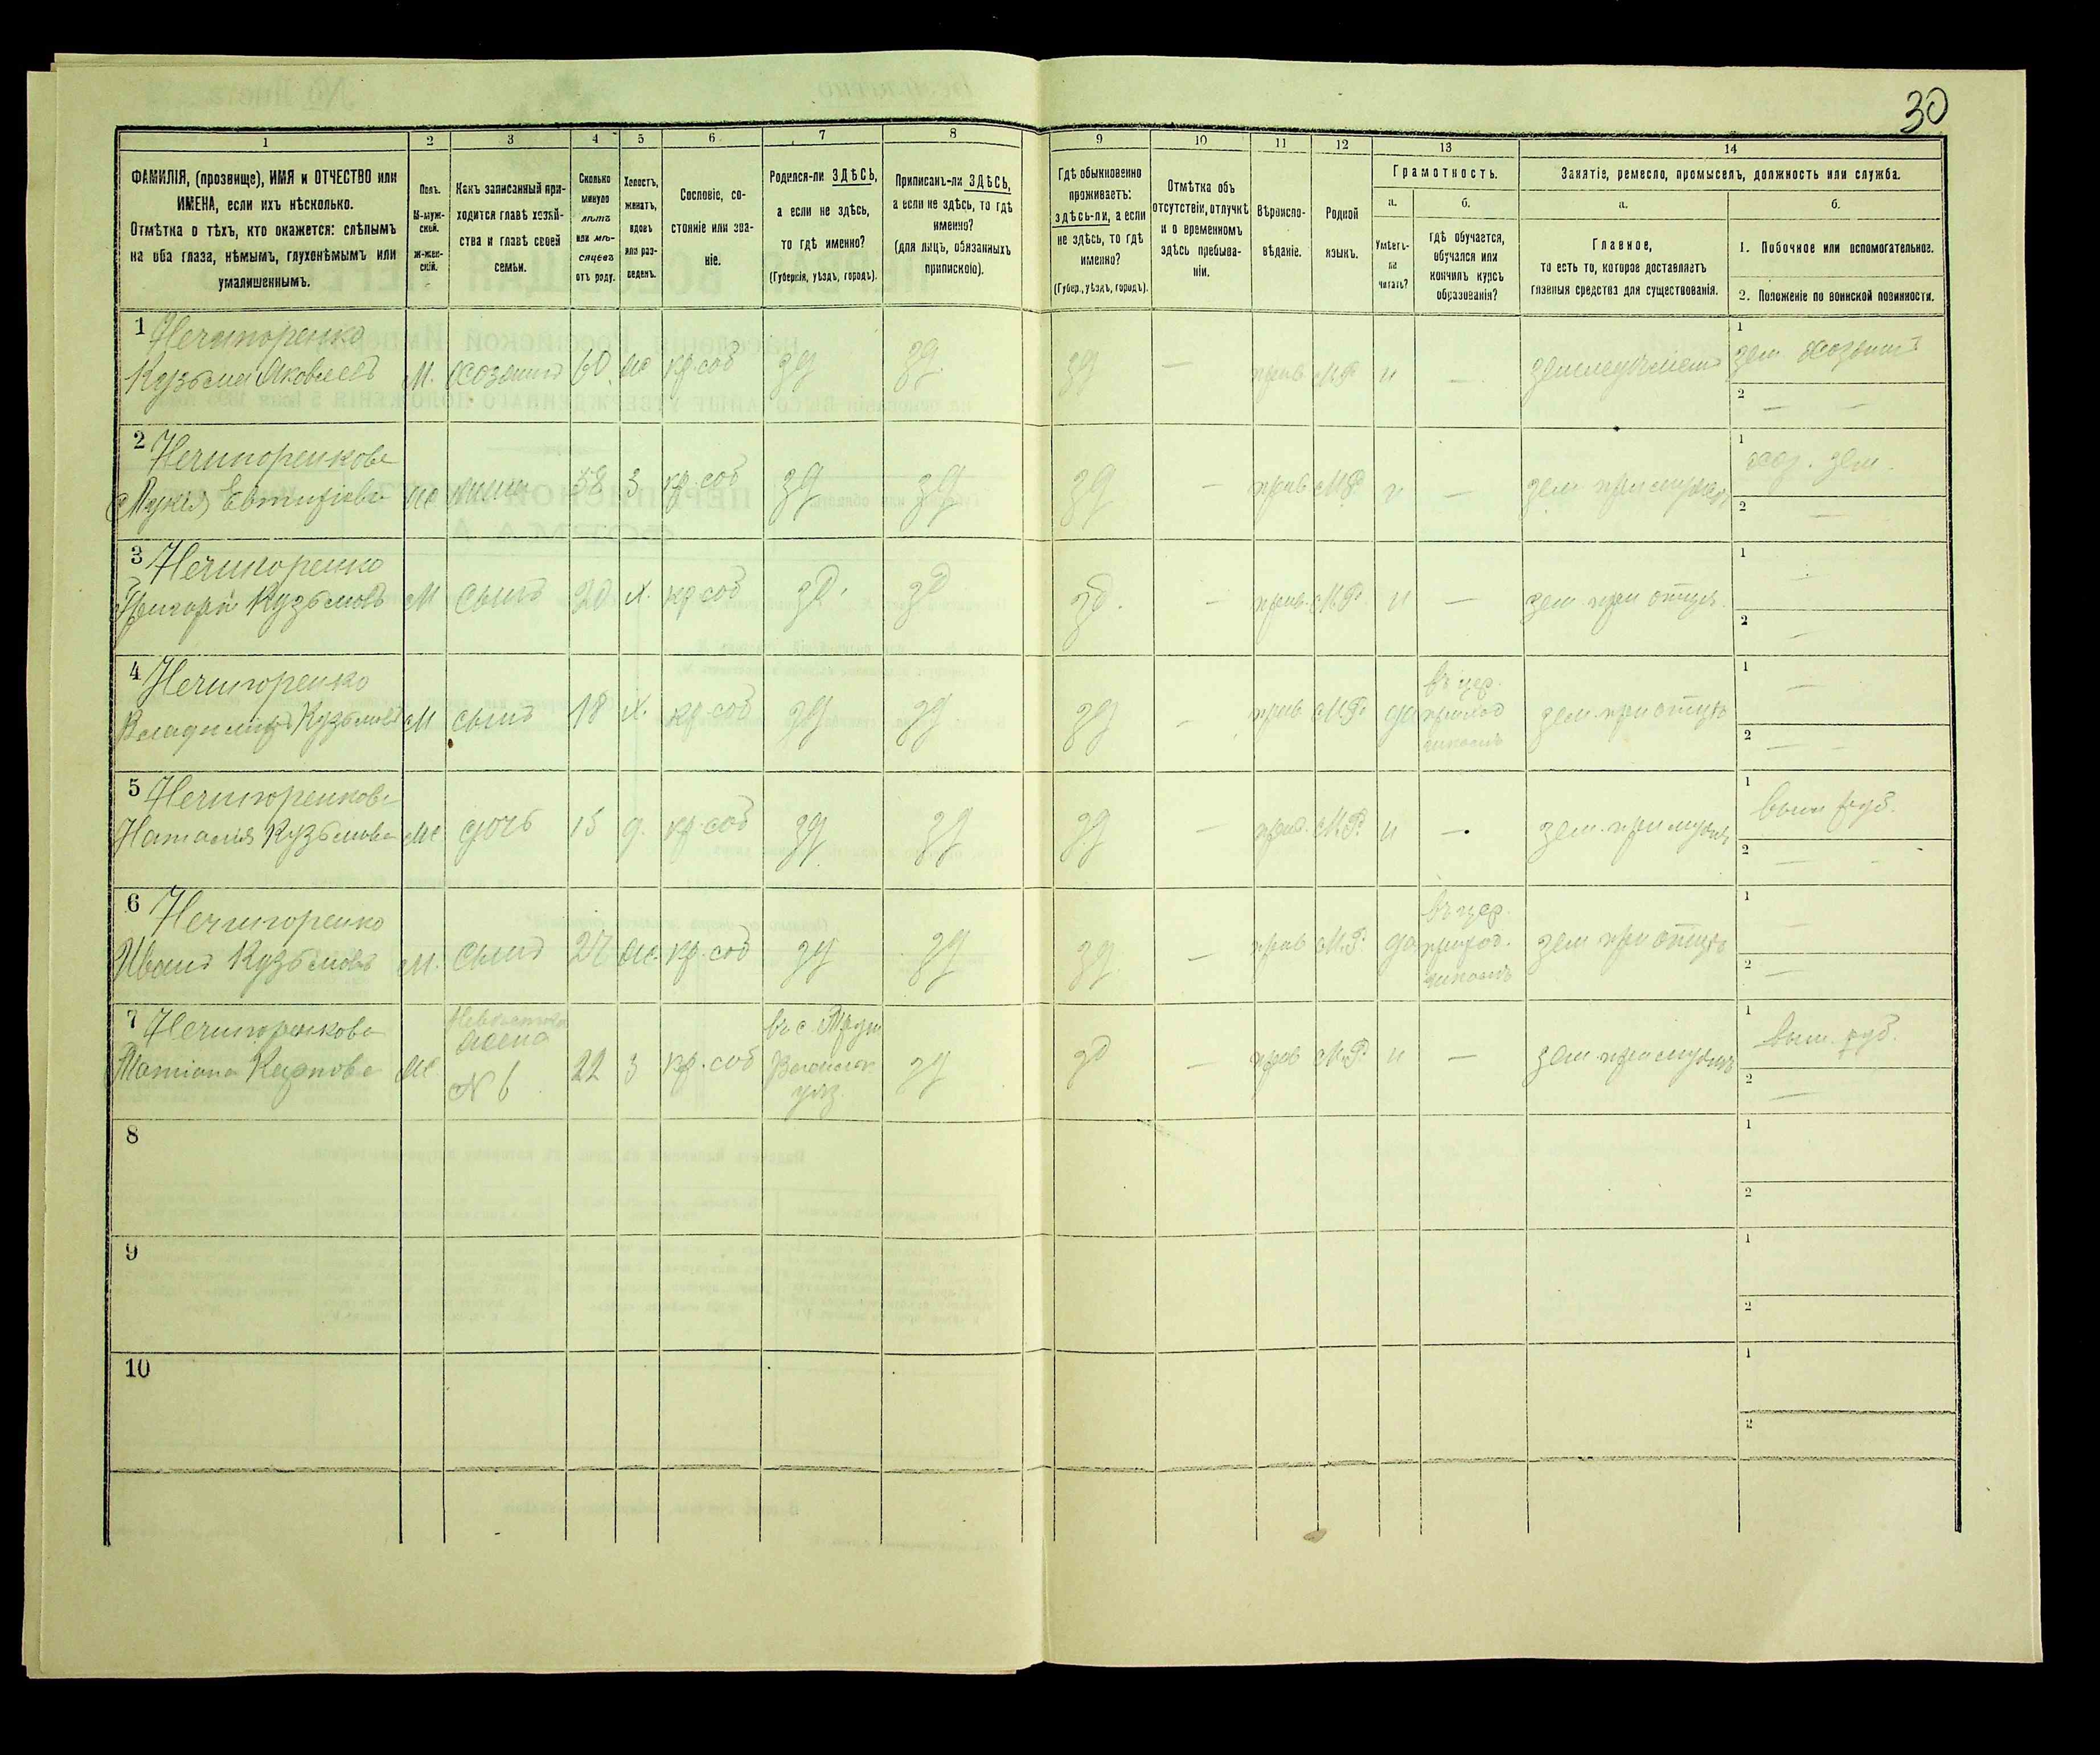 30
1 2 3 4 5 6 7 8 9 10 11 12 13 14
ФАМИЛІЯ, (прозвище), ИМЯ и ОТЧЕСТВО или
ИМЕНА, если ихъ нѣсколько.
Отмѣтка о тѣхъ, кто окажется: слѣпымъ
на оба глаза, нѣмымъ, глухонѣмымъ или
умалишеннымъ.
Полъ.
М-муж-
ской.
Ж-жен-
скій.
Какъ записанный при-
ходится главѣ хозяй-
ства и главѣ своей
семьи.
Сколько
минуло
лѣтъ
или мѣ-
сяцевъ
отъ роду.
Холостъ,
женатъ,
вдовъ
или раз-
веденъ.
Сословіе, со-
стояніе или зва-
ніе.
Родился-ли ЗДѢСЬ,
а если не здѣсь,
то гдѣ именно?
(Губернія, уѣздъ, городъ).
Приписанъ-ли ЗДѢСЬ,
а если не здѣсь, то гдѣ
именно?
(для лицъ, обязанныхъ
припискою).
Гдѣ обыкновенно
проживаетъ:
здѣсь-ли, а если
не здѣсь, то гдѣ
именно?
(Губер., уѣздъ, городъ).
Отмѣтка объ
отсутствіи, отлучкѣ
и о временномъ
здѣсь пребыва-
ніи.
Вѣроиспо-
вѣданіе.
Родной
языкъ.
Грамотность.
а.
Умѣетъ-
ли
читать?
б.
гдѣ обучается,
обучался или
кончилъ курсъ
образованія?
Занятіе, ремесло, промыселъ, должность или служба.
а.
Главное,
то есть то, которое доставляетъ
главныя средства для существованія.
б.
1. Побочное или вспомогательное.
2. Положеніе по воинской повинности.
1 Нечипоренко
Кузьма Яковлевъ М. хозяинъ 60 ж кр. соб зд зд зд — прав М.Р. н — земледѣлецъ
1 зем хозяинъ
2 — —
2 Нечипоренкова
Евтифіева ж жена 58 з кр. соб зд зд зд — прав М.Р. н — зем при мужѣ
1 хоз. зем.
2 —
3 Нечипоренко
Григорій Кузьмовъ М сынъ 20 х. кр соб зд. зд зд. — прав. М.Р. н — зем при отцѣ
1
2 —
4 Нечипоренко
Владиміръ Кузьмовъ М сынъ 18 х. кр. соб зд зд зд — прав М.Р. да
въ цер.
приход
школѣ
зем при отцѣ
1 —
2 — —
5 Нечипоренкова
Наталія Кузьмова ж дочь 15 д. кр. соб зд зд зд — прав. М.Р. н — зем. при мужѣ
1
2 — —
6 Нечипоренко
Иванъ Кузьмовъ М. сынъ 27 ж. кр. соб зд зд зд — прав М.Р. да
въ цер.
приход.
школѣ
зем при отцѣ
1 —
2 —
7 Нечипоренкова
Татіана Карпова ж
жена
№ 6
22 з кр. соб
въ с.
уѣз.
зд зд — прав М.Р. н — зем. при мужѣ
1
2 —
8
1
2
9
1
2
10
1
2